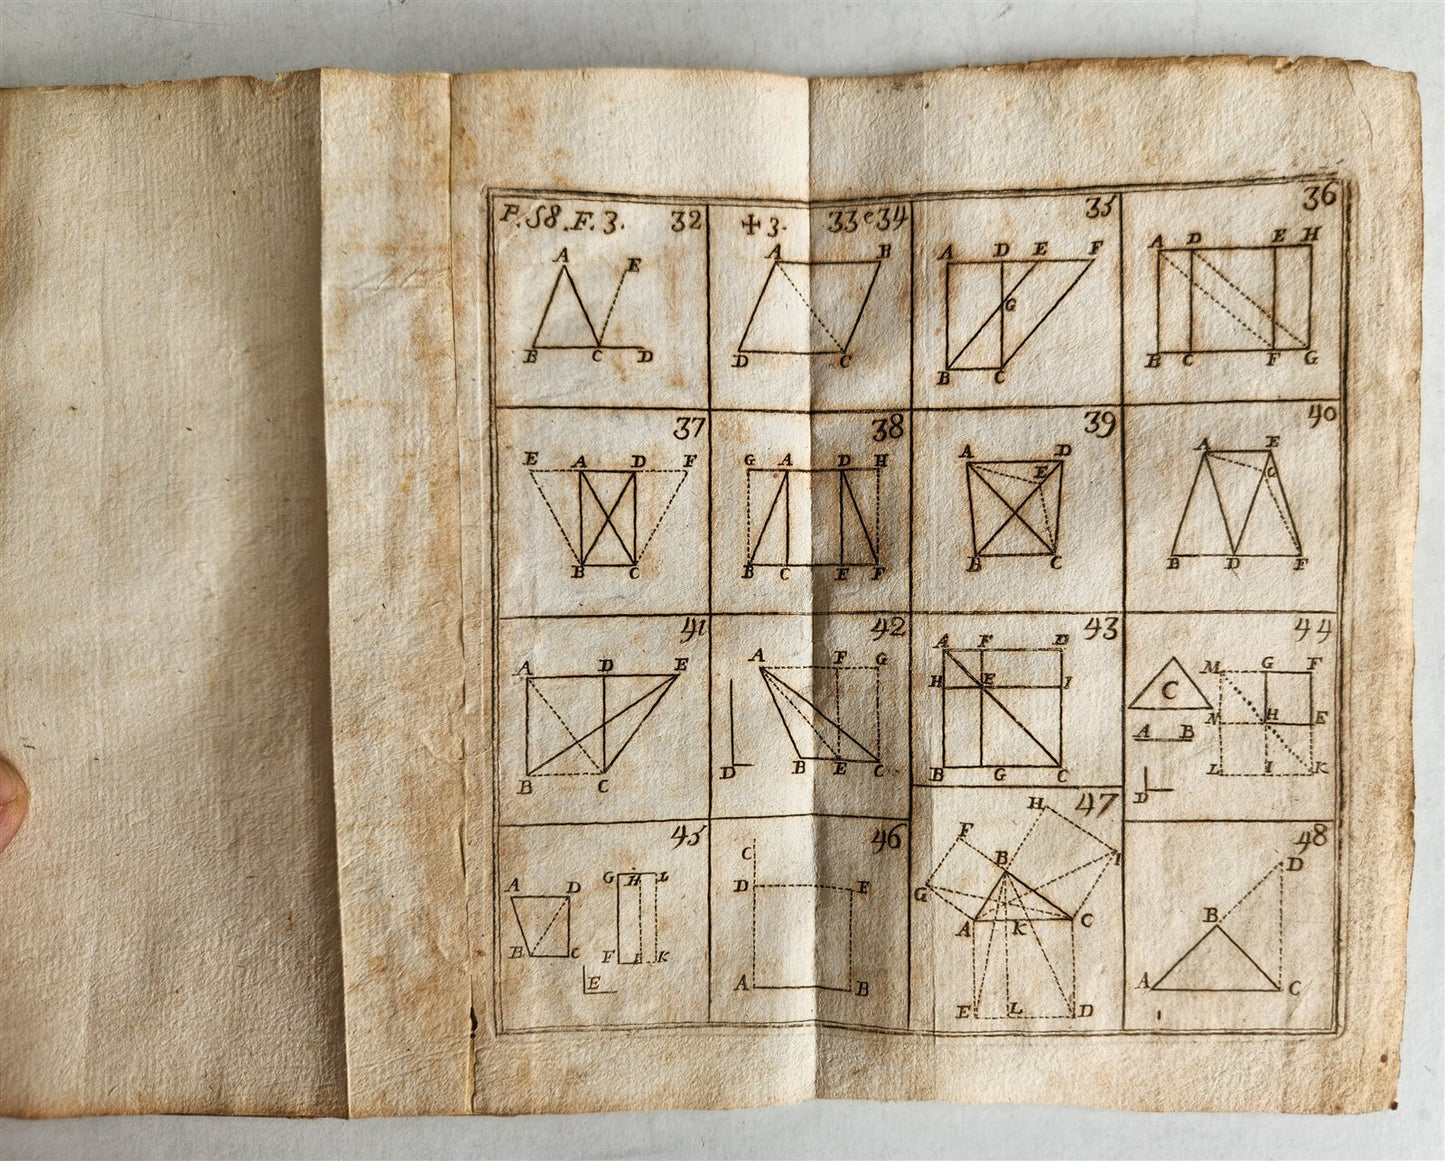 P. 58. F. 3. 32
A E
B C D
✠ 3. 33 e 34
A B
D C
35
A D E F
G
B C
36
A D E H
B C F G
37
E A D F
B C
38
G A D H
B C E F
39
A D
E
B C
40
A E
C
B D F
41
A D E
B C
42
A F G
D B E C
43
A F D
H E I
B G C
44
C
M G F
N H E
A B
L I K
D
45
A D
B C
G H L
F I K
E
46
C
D E
A B
47
H
F
B I
G
A K C
E L D
48
D
B
A C